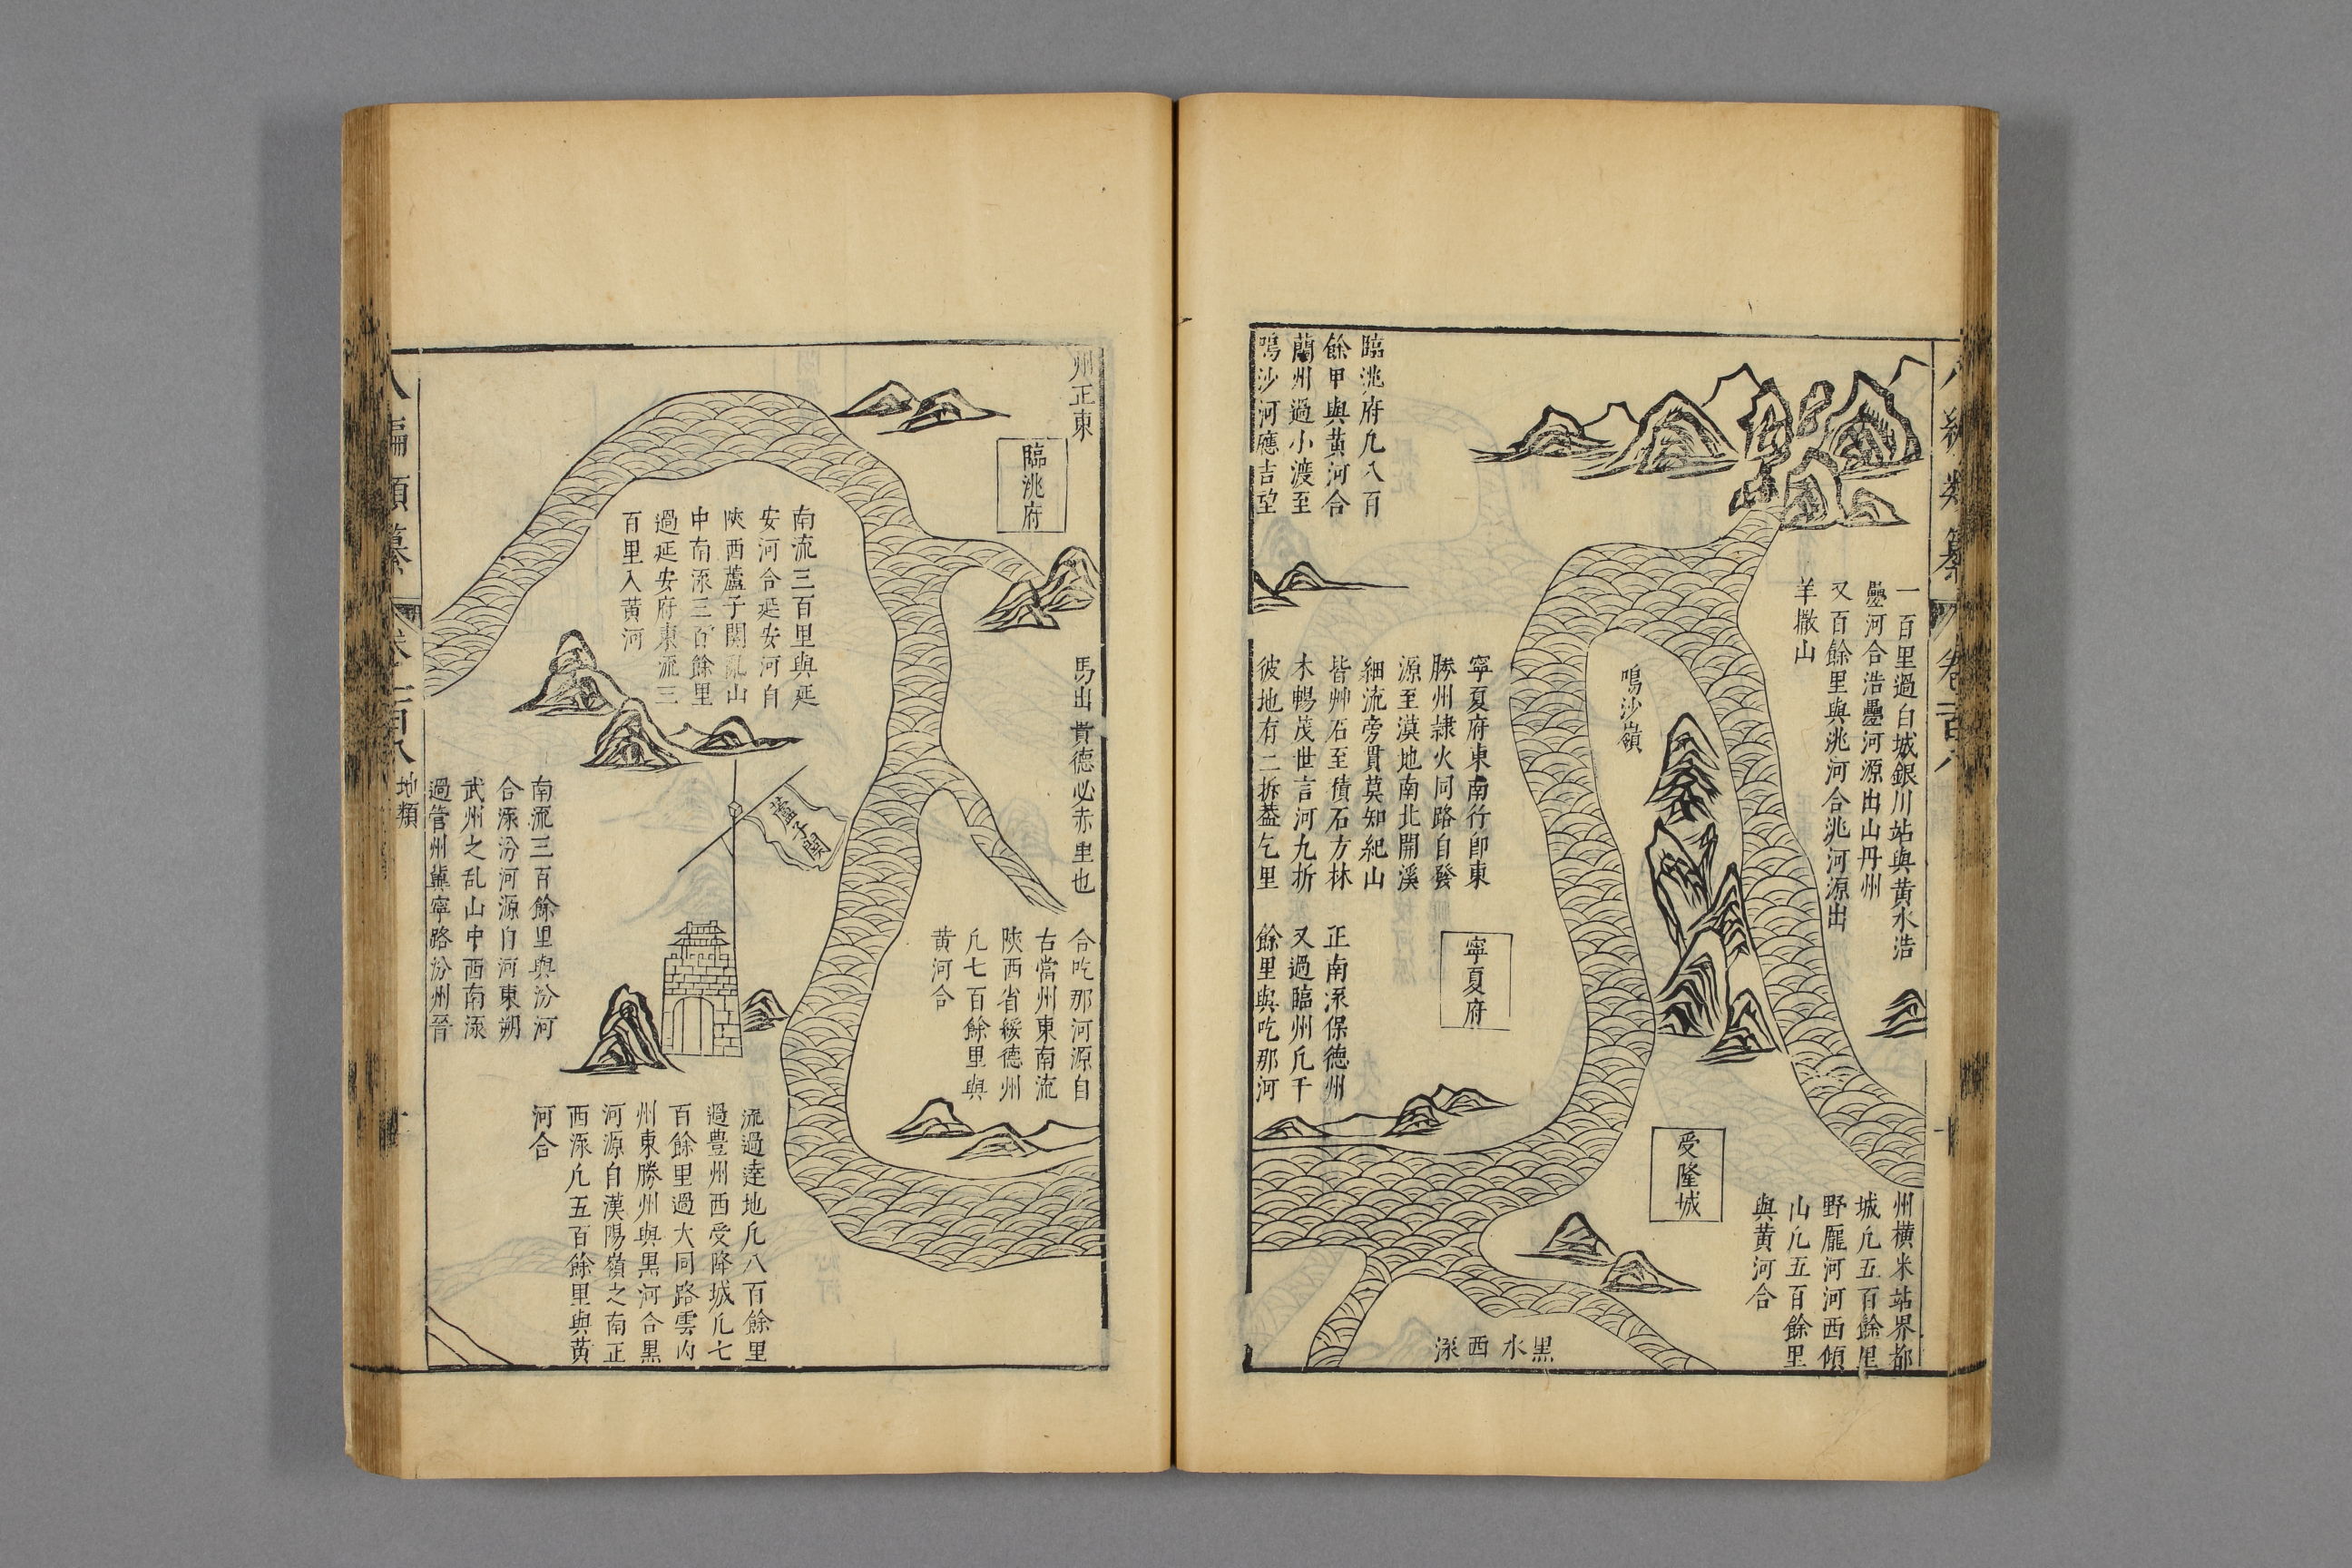 一百里過白城銀川站與黃水浩
亹河合浩亹河源出山丹州
又百餘里與洮河合洮河源出
羊撒山
州橫米站界都
城凢五百餘里
野龎河河西傾
山凢五百餘里
與黃河合
鳴沙嶺
受隆城
黑水西㳅
臨洮府凢八百
餘甲與黃河合
蘭州過小渡至
鳴沙河應吉
寧夏府東南行卽東
勝州隷火同路自發
源至漠地南北開溪
細流旁貫莫知紀山
皆艸石至積石方林
木暢茂世言河九折
彼地有二折葢乞里
寧夏府
正南㳅保德州
又過臨州凢千
餘里與吃那河
州正東
臨洮府
馬出貴德必赤里也
合吃那河源自
古當州東南流
陝西省綏德州
凢七百餘里與
黃河合
南流三百里與延
安河合延安河自
陝西蘆子關亂山
中南㳅三百餘里
過延安府東流三
百里入黃河
蘆子関
流過逹地凢八百餘里
過豊州西受降城凢七
百餘里過大同路雲內
州東勝州與黑河合黑
河源自漢陽嶺之南正
西㳅凢五百餘里與黃
河合
南流三百餘里與汾河
合㳅汾河源自河東朔
武州之乱山中西南㳅
過管州冀寧路汾州晉
地類